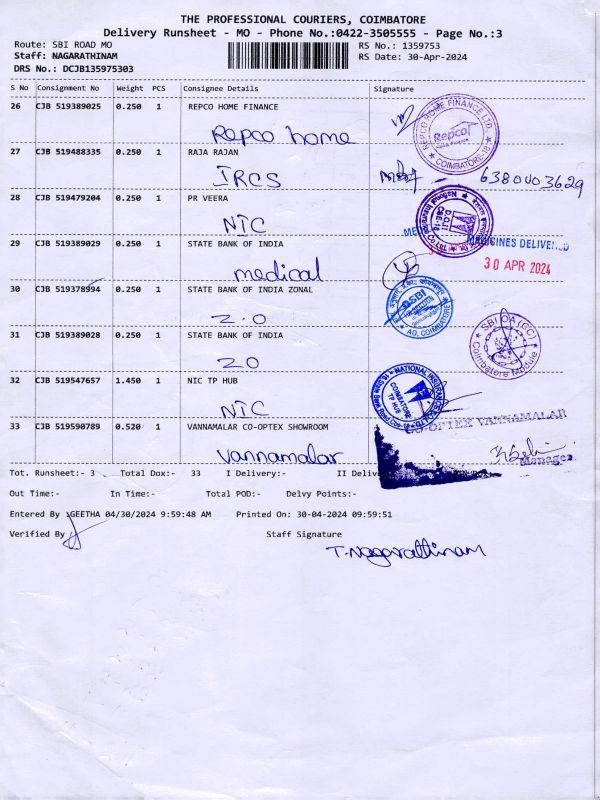 THE PROFESSIONAL COURIERS, COIMBATORE
Delivery Runsheet - MO - Phone No.:0422-3505555 - Page No.:3
Route: SBI ROAD MO
RS No.: 1359753
Staff: NAGARATHINAM
RS Date: 30-Apr-2024
DRS No.: DCJB135975303
S No Consignment No Weight PCS Consignee Details Signature
26 CJB 519389025 0.250 1 REPCO HOME FINANCE
Repco home
REPCO HOME FINANCE LTD.
Repco
Home Finance
COIMBATORE-18
27 CJB 519488335 0.250 1 RAJA RAJAN
IRCS
6380003629
28 CJB 519479204 0.250 1 PR VEERA
NIC
29 CJB 519389029 0.250 1 STATE BANK OF INDIA
medical
MEDICINES DELIVERED
30 APR 2024
30 CJB 519378994 0.250 1 STATE BANK OF INDIA ZONAL
Z.O
SBI
AO, COIMBATORE
31 CJB 519389028 0.250 1 STATE BANK OF INDIA
ZO
SBI OA (CC)
Coimbatore Module
32 CJB 519547657 1.450 1 NIC TP HUB
NIC
NATIONAL INSURANCE
COIMBATORE
TP HUB
33 CJB 519590789 0.520 1 VANNAMALAR CO-OPTEX SHOWROOM
Vannamalar
CO-OPTEX VANNAMALAR
Manager
Tot. Runsheet:- 3 Total Dox:- 33 I Delivery:- II Deliv
Out Time:- In Time:- Total POD:- Delvy Points:-
Entered By :GEETHA 04/30/2024 9:59:48 AM Printed On: 30-04-2024 09:59:51
Verified By Staff Signature
T. Nagarathinam